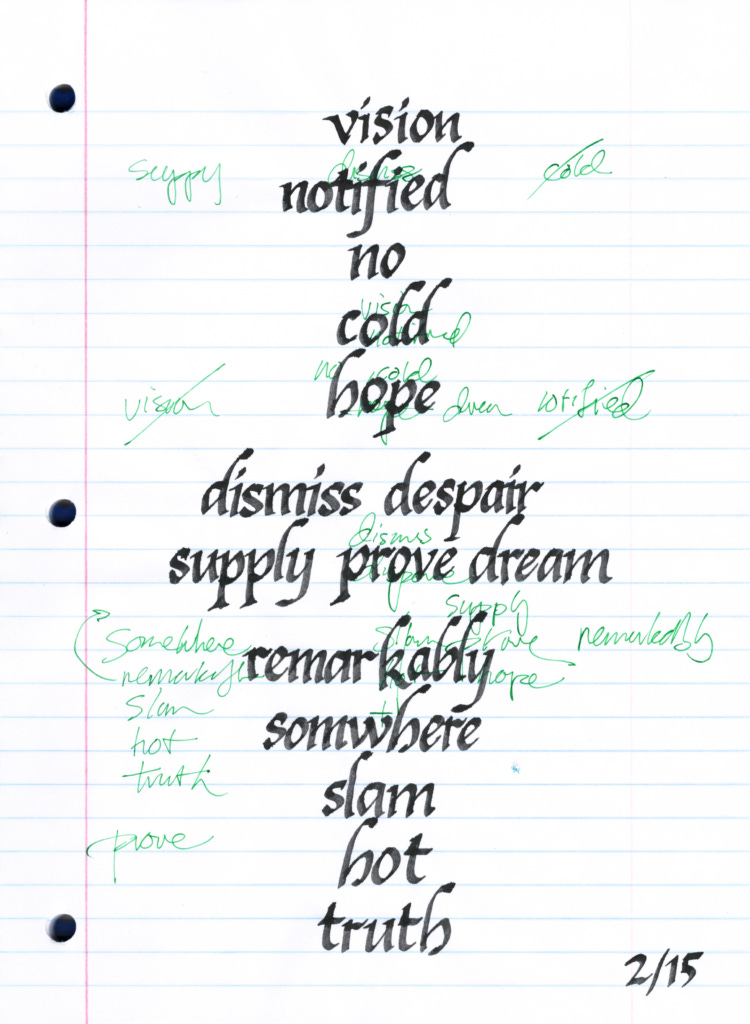 vision
supply dismiss cold
notified
no
vision
cold
notified
no cold
hope
vision dream notified
dismiss despair
dismiss
supply prove dream
supply
somewhere slam prove remarkedbly
remarkably
hope
slam
somwhere
hot
truth
slam
prove
hot
truth
2/15